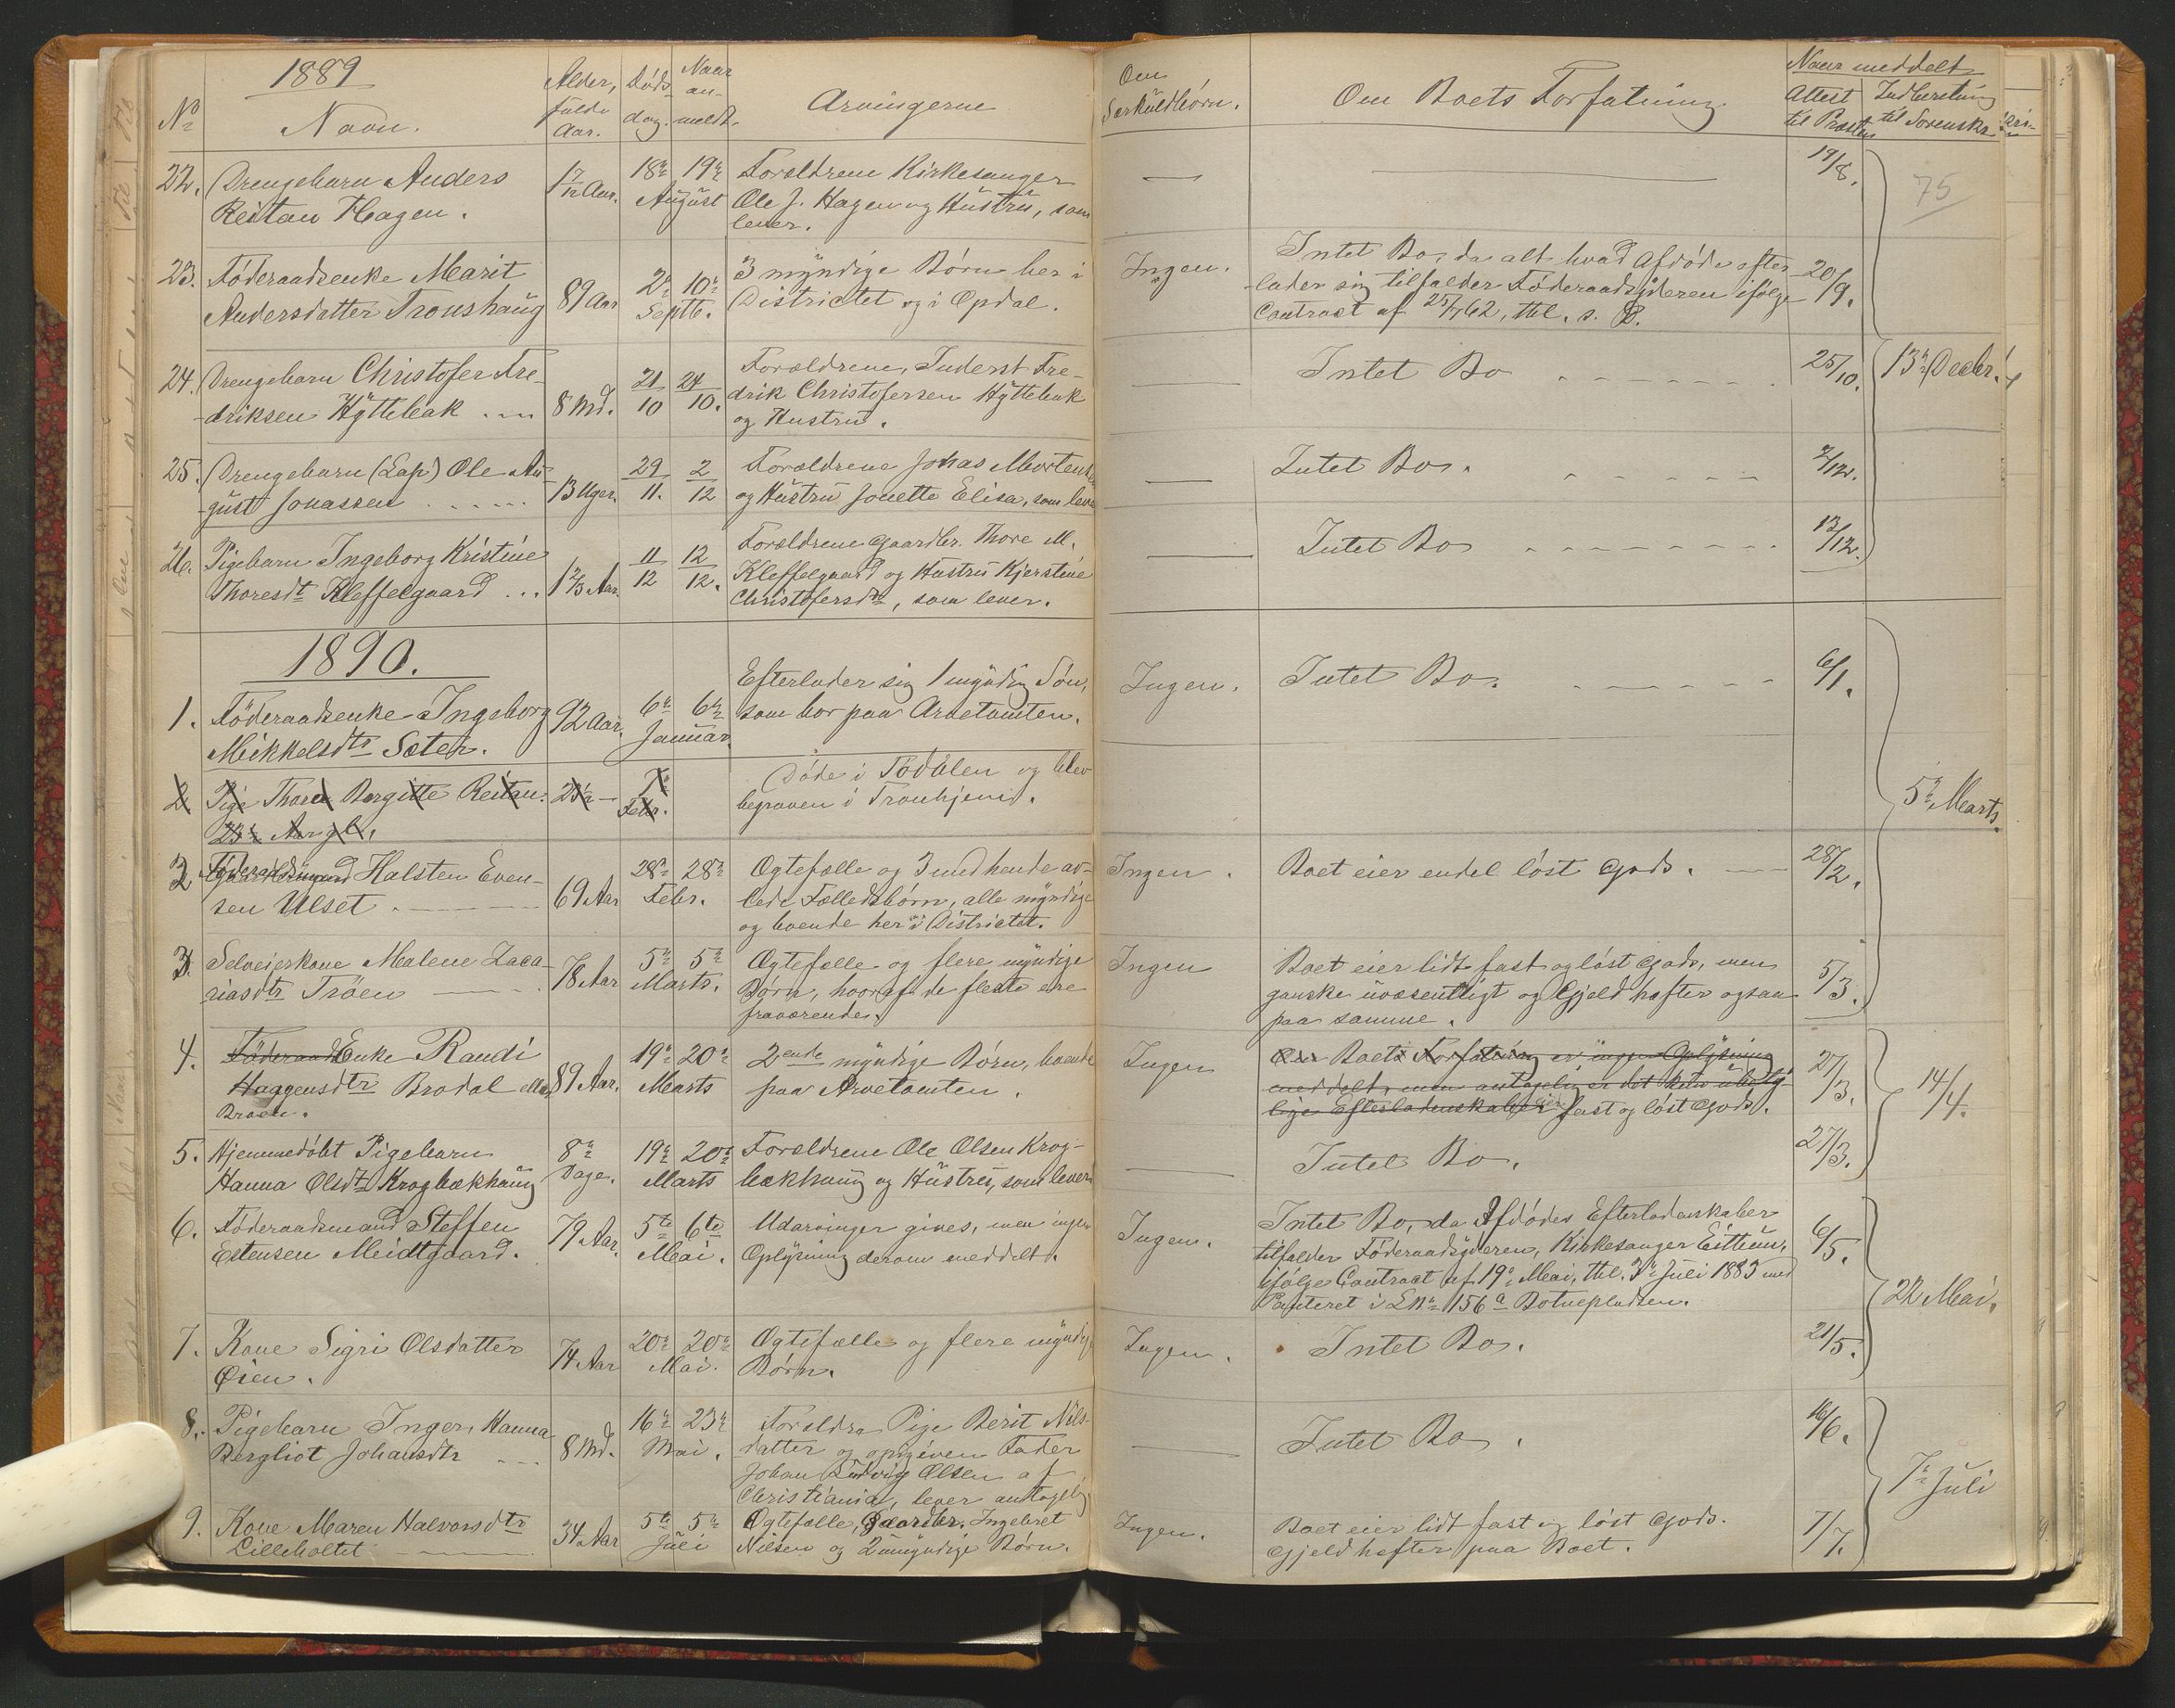 1889
No Navn.
Alder, fulde Aar.
Døds dag.
Naar an- meldt.
Arvingerne
Om Særkuldbørn.
Om Boets Forfatning.
Naar meddelt
Attest til Præsten
Indberetning til Sorenskr.
75
22. Drengebarn Anders
Reitan Hagen.
1 7/12 Aar.
18de 19de
August
Forældrene Kirkesanger
Ole J. Hagen og Hustru, som
lever.
—
19/8.
23. Føderaadsenke Marit
Andersdatter Tronshaug
89 Aar
2de 10de
Septbr.
3 myndige Børn her i
Districtet og i Opdal.
Ingen.
Intet Bo, da alt hvad Afdøde efter
-lader sig tilfalder Føderaadsyderen ifølge
Contract af 25/7 62, thl. s. D.
20/9.
24. Drengebarn Christofer Fre-
-driksen Hyttebak
8 Md.
21/10 24/10.
Forældrene, Inderst Fre-
drik Christofersen Hyttebak
og Hustru.
—
Intet Bo
25/10.
13de Decbr.
25. Drengebarn (Lap) Ole Au-
-gust Jonassen
13 Uger.
29/11. 2/12
Forældrene Jonas Mortens
og Hustru Jonette Elisa, som leve
—
Intet Bo.
2/12.
26. Pigebarn Ingeborg Kristine
Thoresdt Kleffelgaard
1 2/3 Aar.
11/12 12/12.
Forældrene Gaardbr. Thore M.
Kleffelgaard og Hustru Kjerstine
Christofersdtr, som lever.
—
Intet Bo
13/12.
1890.
1. Føderaadsenke Ingeborg
Mikkelsdtr Sæter.
92 Aar.
6te 6te
Januar.
Efterlader sig 1 myndig Søn,
som bor paa Arvetomten.
Ingen.
Intet Bo.
6/1.
2 Pige Thora Borgitte Reitan.
23de Aar gl.
Febr.
Døde i Tødalen og blev
begraven i Tronhjem.
5te Marts.
2 Føderaadsmand Halsten Even-
sen Ulset
69 Aar
28de 28de
Febr.
Ogtefælle og 3 med hende av-
lede Fælledsbørn, alle myndige
og boende her i Districtet.
Ingen.
Boet eier endel løst Gods.
28/2.
3. Selveierkone Malene Zaca-
riasdtr Trøen
78 Aar
5te 5te
Marts.
Ogtefælle og flere myndige
Børn, hvoraf de fleste ere
fraværende.
Ingen
Boet eier lidt fast og løst Gods, men
ganske uvæsentligt og Gjeld hæfter ogsaa
paa samme.
5/3.
4. Føderaads Enke Randi
Haggensdtr Brodal eller
Braen.
89 Aar.
19de 20de
Marts
2ende myndige Børn, boende
paa Arvetomten.
Ingen
Om Boets Forfatning er ingen Oplysning
meddelt, men antagelig er det kun ubety-
lige Efterladenskaber fast og løst Gods.
27/3.
14/4.
5. Hjemmedøbt Pigebarn
Hanna Olsdtr Krogbækhaug
8te Dage.
19de 20de
Marts
Forældrene Ole Olsen Krog-
bækhaug og Hustru, som lever
—
Intet Bo.
27/3.
6. Føderaadsmand Steffen
Estensen Meidtgaard.
79 Aar.
5te 6te
Mai.
Udarvinger gives, men ingen
Oplysning derom meddelt.
Ingen.
Intet Bo, da Afdødes Efterladenskaber
tilfalder Føderaadsyderen, Kirkesanger Eithun,
ifølge Contract af 19de Mai, thl. 3de Juli 1883 med
Panteret i LNo 156a Botnepladsen.
6/5.
22 Mai.
7. Kone Sigri Olsdatter
Øien.
74 Aar
20de 20de
Mai.
Ogtefælle og flere myndige
Børn.
Ingen.
Intet Bo.
21/5.
8. Pigebarn Inger Hanna
Bergliot Johansdtr
8 Md.
16de 23de
Mai.
Forældre Pige Berit Nils-
datter og opgiven Fader
Johan Ludvig Olsen af
Christiania, lever antagelig
—
Intet Bo.
16/6.
7de Juli
9. Kone Maren Halvorsdtr
Lilleholtet
34 Aar
5te 5te
Juli
Ogtefælle, Gaardbr. Ingebret
Nilsen og 2 umyndige Børn.
Ingen.
Boet eier lidt fast og løst Gods.
Gjeld hæfter paa Boet.
7/7.